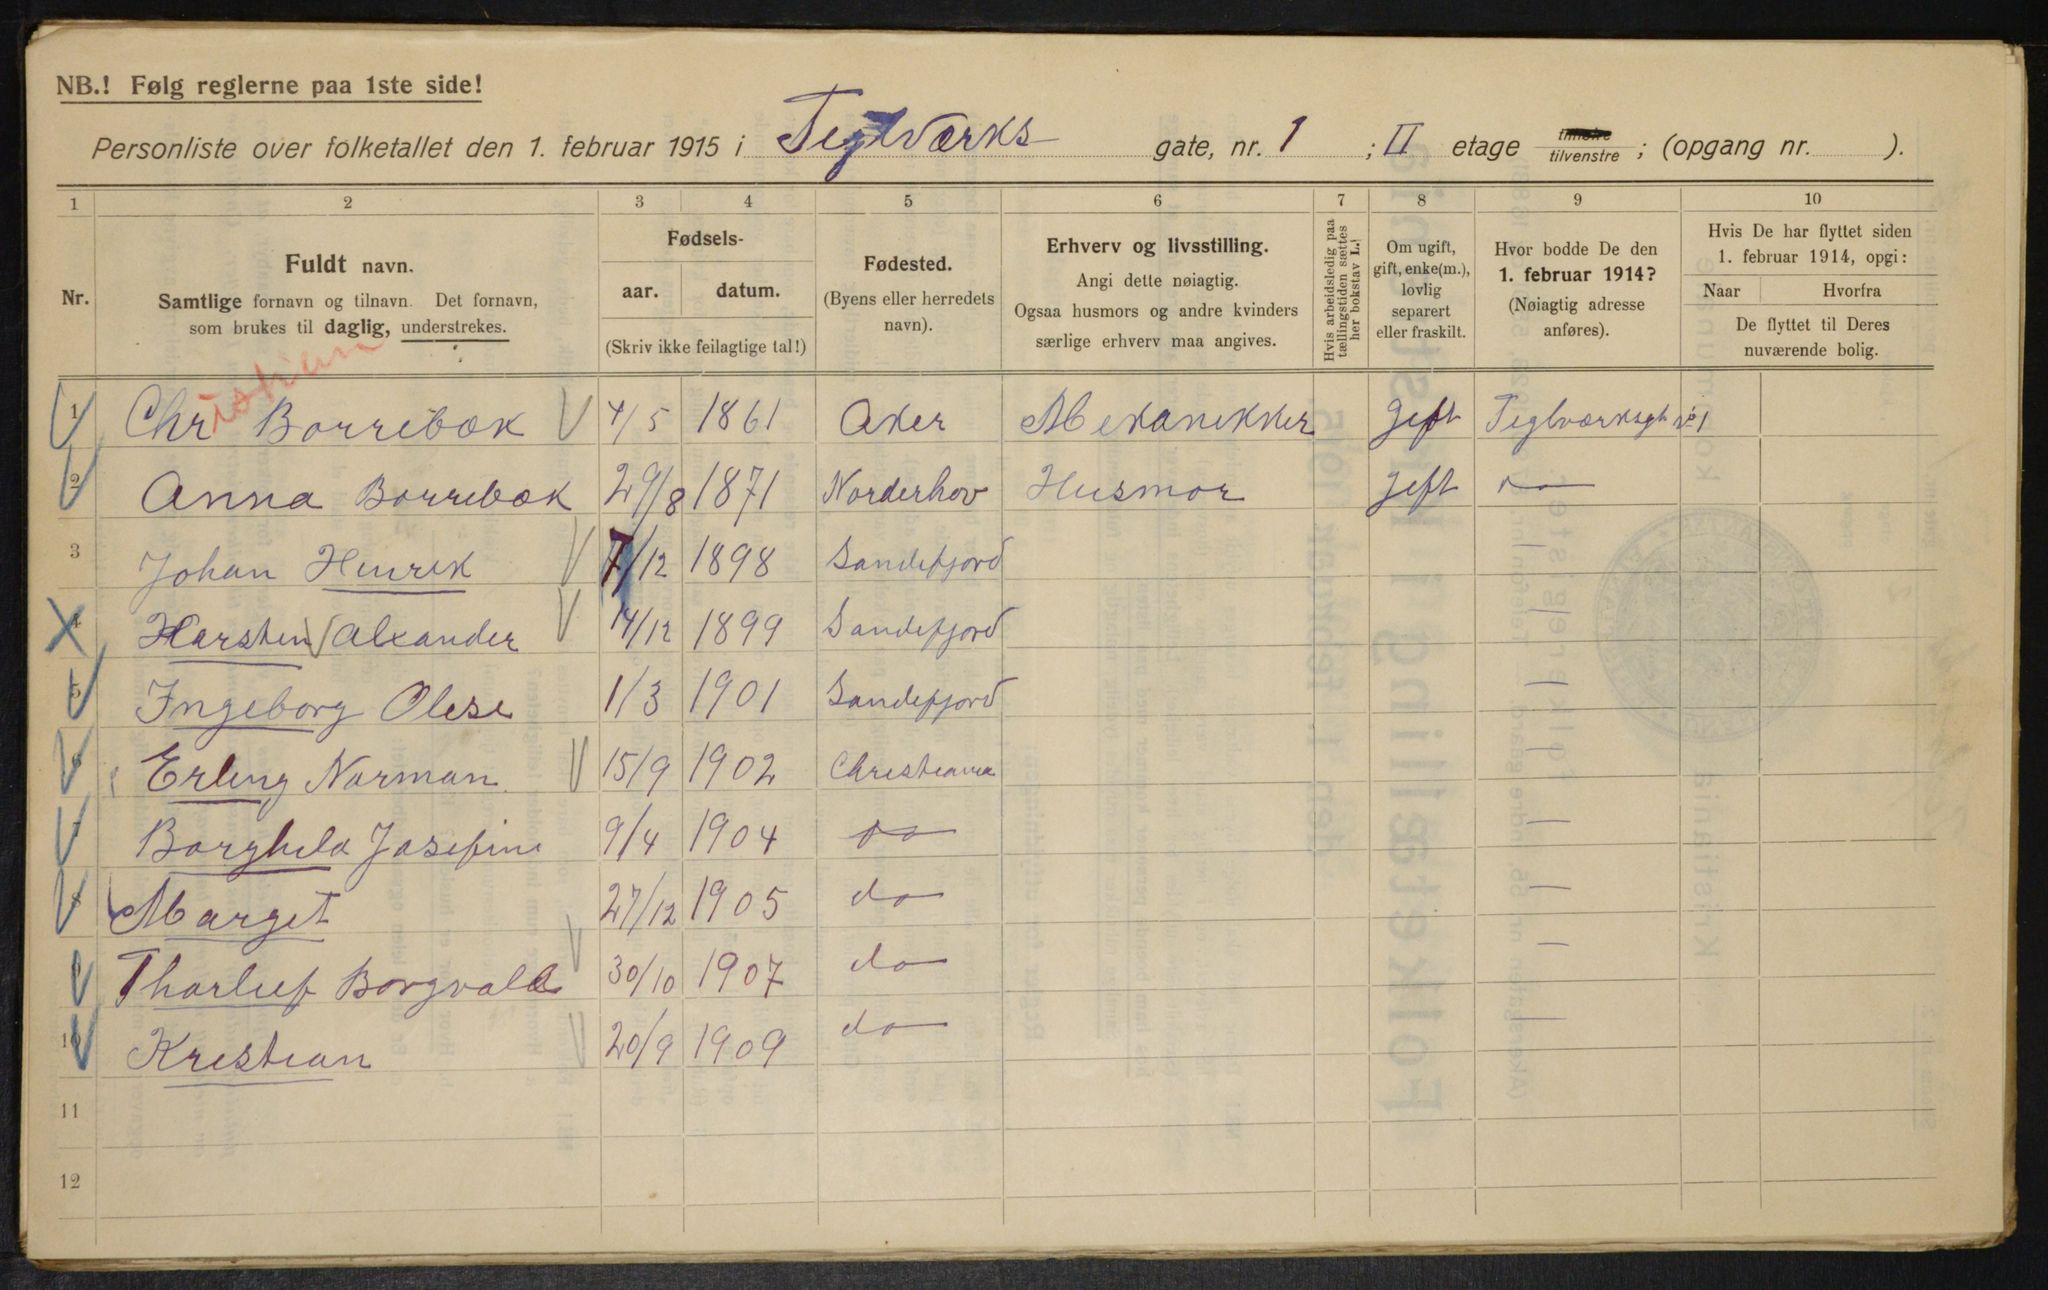 NB.! Følg reglerne paa 1ste side!
Personliste over folketallet den 1. februar 1915 i Teglværks gate, nr. 1 ; II etage tilhøire tilvenstre ; (opgang nr. ).
1 2 3 4 5 6 7 8 9 10
Nr.
Fuldt navn.
Samtlige fornavn og tilnavn. Det fornavn,
som brukes til daglig, understrekes.
Fødsels-
aar. datum.
(Skriv ikke feilagtige tal!)
Fødested.
(Byens eller herredets
navn).
Erhverv og livsstilling.
Angi dette nøiagtig.
Ogsaa husmors og andre kvinders
særlige erhverv maa angives.
Hvis arbeidsledig paa
tællingstiden sættes
her bokstav L.!
Om ugift,
gift, enke(m.),
lovlig
separert
eller fraskilt.
Hvor bodde De den
1. februar 1914?
(Nøiagtig adresse
anføres).
Hvis De har flyttet siden
1. februar 1914, opgi:
Naar Hvorfra
De flyttet til Deres
nuværende bolig.
1 Christian Borrebæk 4/5 1861 Aker Mekanikker Gift Teglværksgt No 1
2 Anna Borrebæk 29/8 1871 Norderhov Husmor Gift do
3 Johan Henrik 7/12 1898 Sandefjord —
4 Karsten Alexander 14/12 1899 Sandefjord —
5 Ingeborg Olese 1/3 1901 Sandefjord —
6 Erling Norman 15/9 1902 Christiania —
7 Borghild Josefine 9/4 1904 do —
8 Marget 27/12 1905 do —
9 Thorlief Borgvald 30/10 1907 do —
10 Kristian 20/9 1909 do —
11
12